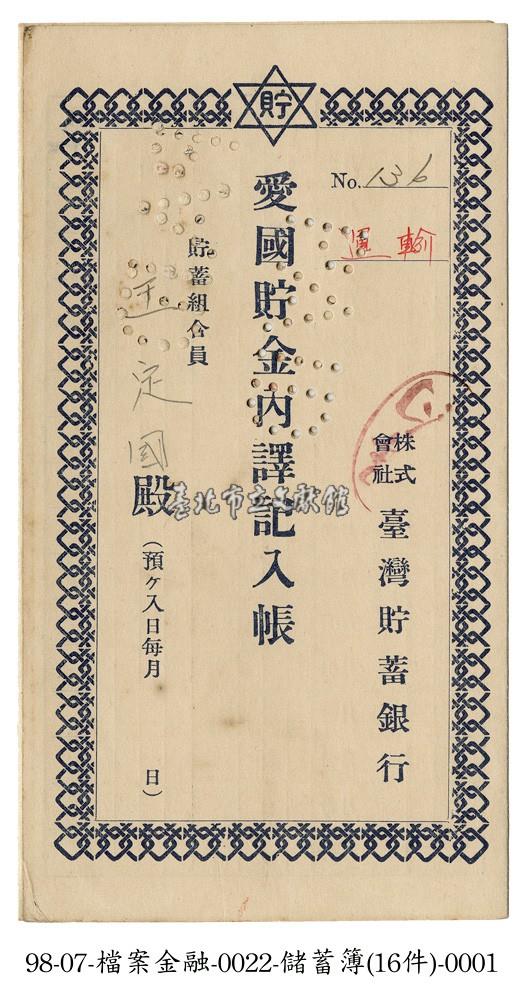 貯
No. 136
運輸
株式會社 臺灣貯蓄銀行
愛國貯金內譯記入帳
貯蓄組合員
定國殿
(預ケ入日每月 日)
臺北市立文獻館
98-07-檔案金融-0022-儲蓄簿(16件)-0001